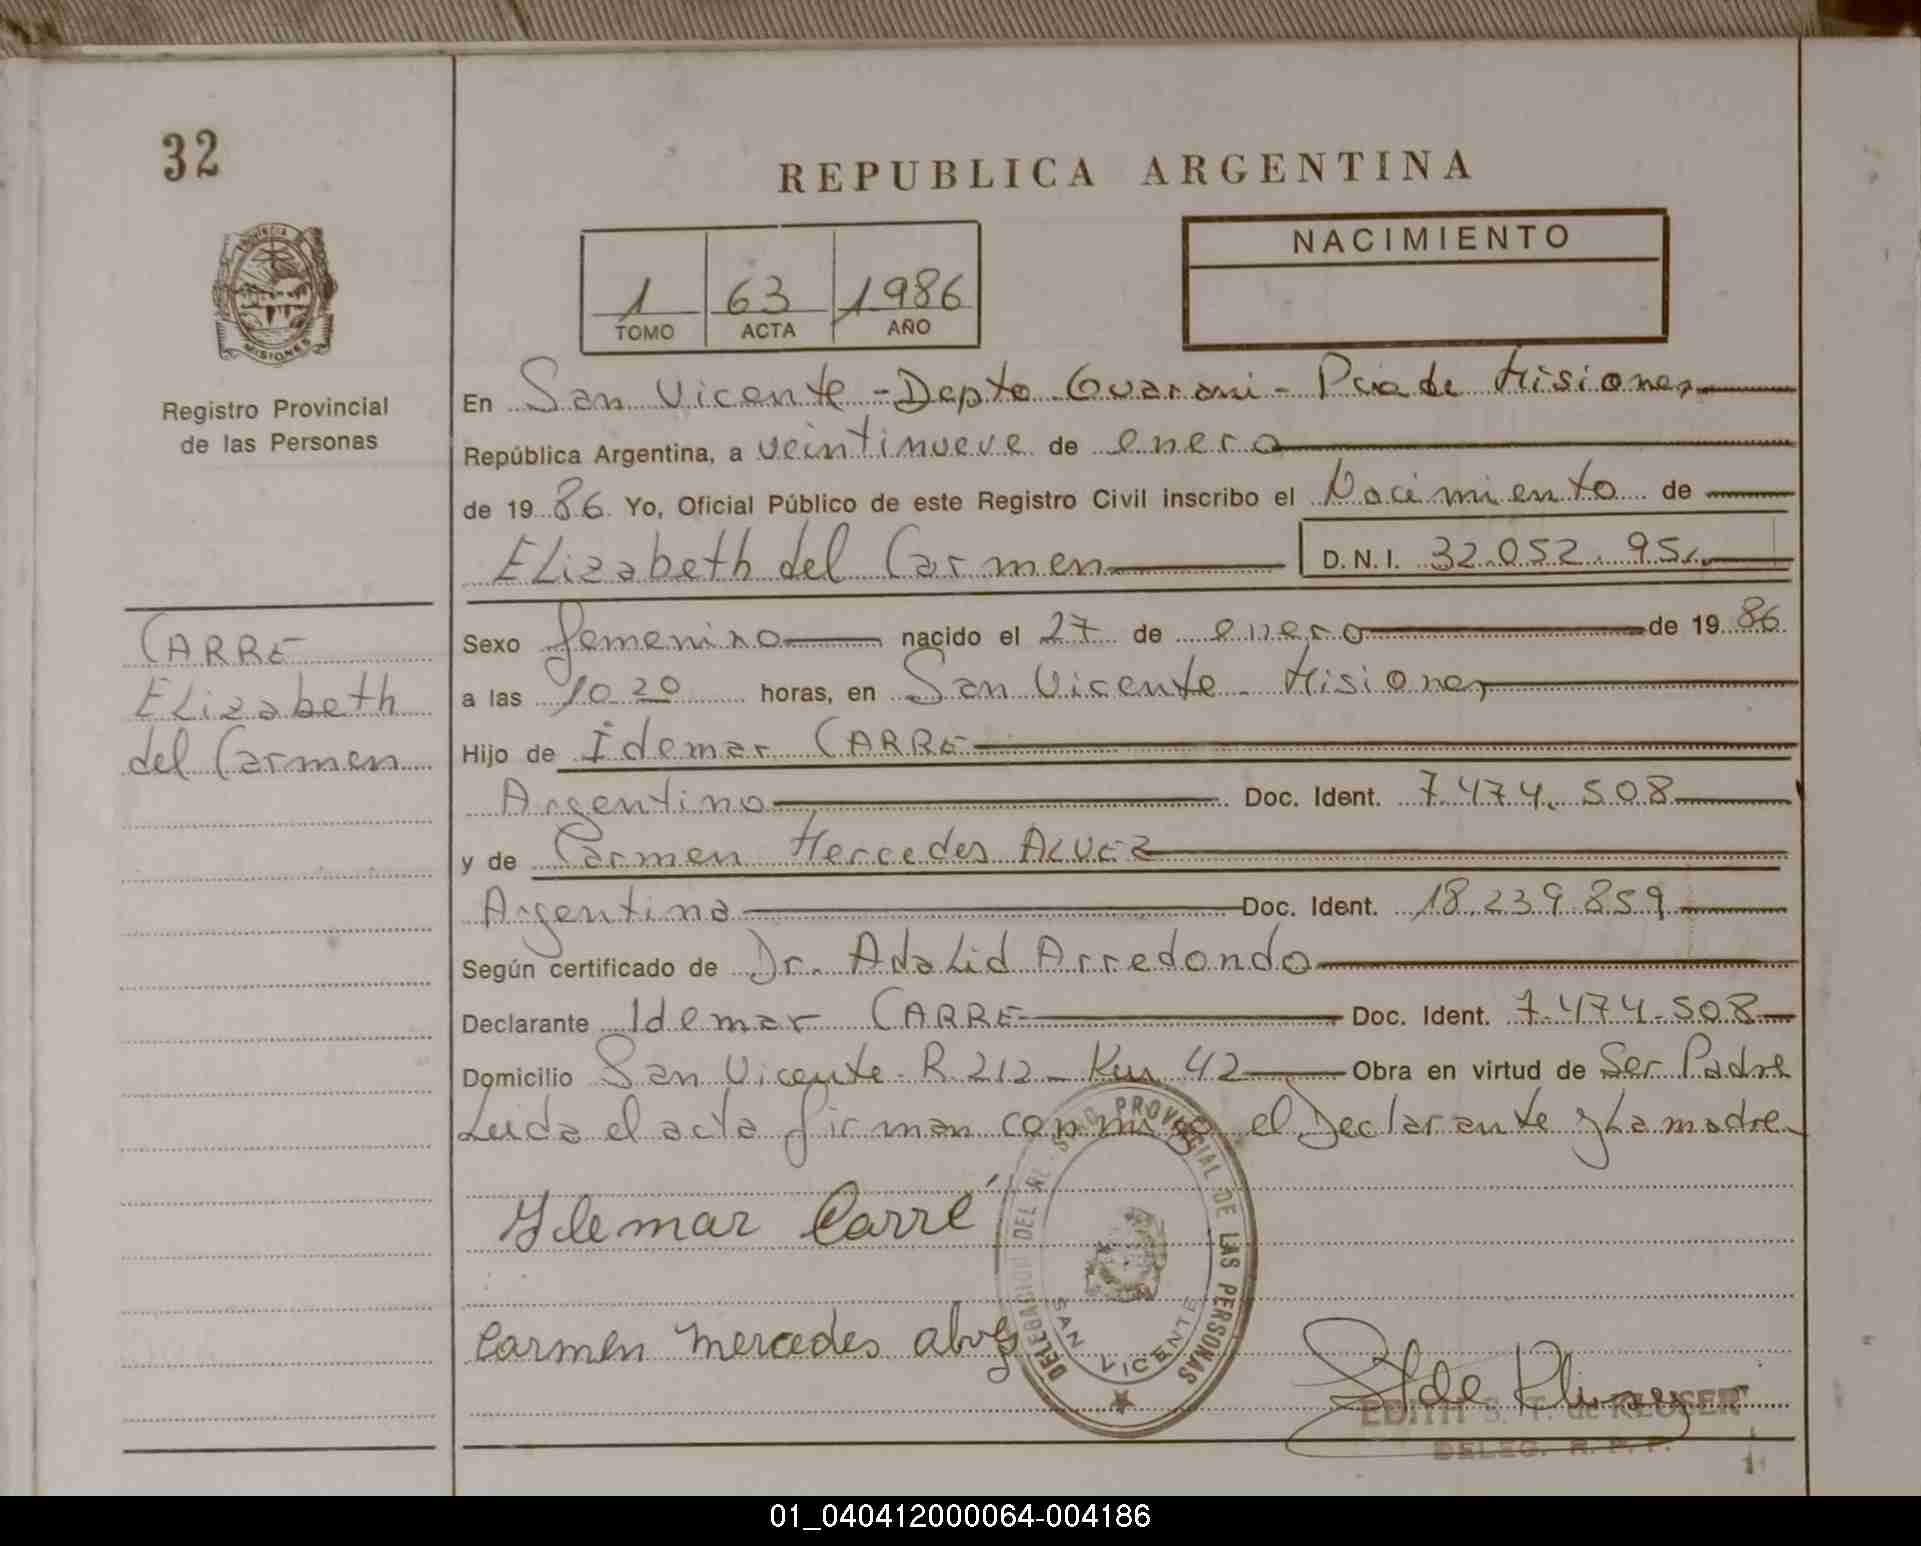 32
REPUBLICA ARGENTINA
PROVINCIA DE
MISIONES
Registro Provincial
de las Personas
1 63 1986
TOMO ACTA AÑO
NACIMIENTO
En San Vicente - Depto Guarani - Pcia de Misiones
República Argentina, a veintinueve de enero
de 1986 Yo, Oficial Público de este Registro Civil inscribo el Nacimiento de
Elizabeth del Carmen D.N.I. 32.052.95
CARRE
Elizabeth
del Carmen
Sexo femenino nacido el 27 de enero de 1986
a las 10 20 horas, en San Vicente - Misiones
Hijo de Idemar CARRE
Argentino Doc. Ident. 7.474.508
y de Carmen Mercedes ALVEZ
Argentina Doc. Ident. 18.239.859
Según certificado de Dr. Adalid Arredondo
Declarante Idemar CARRE Doc. Ident. 7.474.508
Domicilio San Vicente - R 212 - Km 42 Obra en virtud de Ser Padre
Leida el acta firman conmigo el Declarante y La madre
Idemar Carré
carmen mercedes alvez
DELEGACION DEL PROVINCIAL DE LAS PERSONAS
SAN VICENTE
EDITH S. T. de KLUSER
DELEG. R. P. P.
01_040412000064-004186